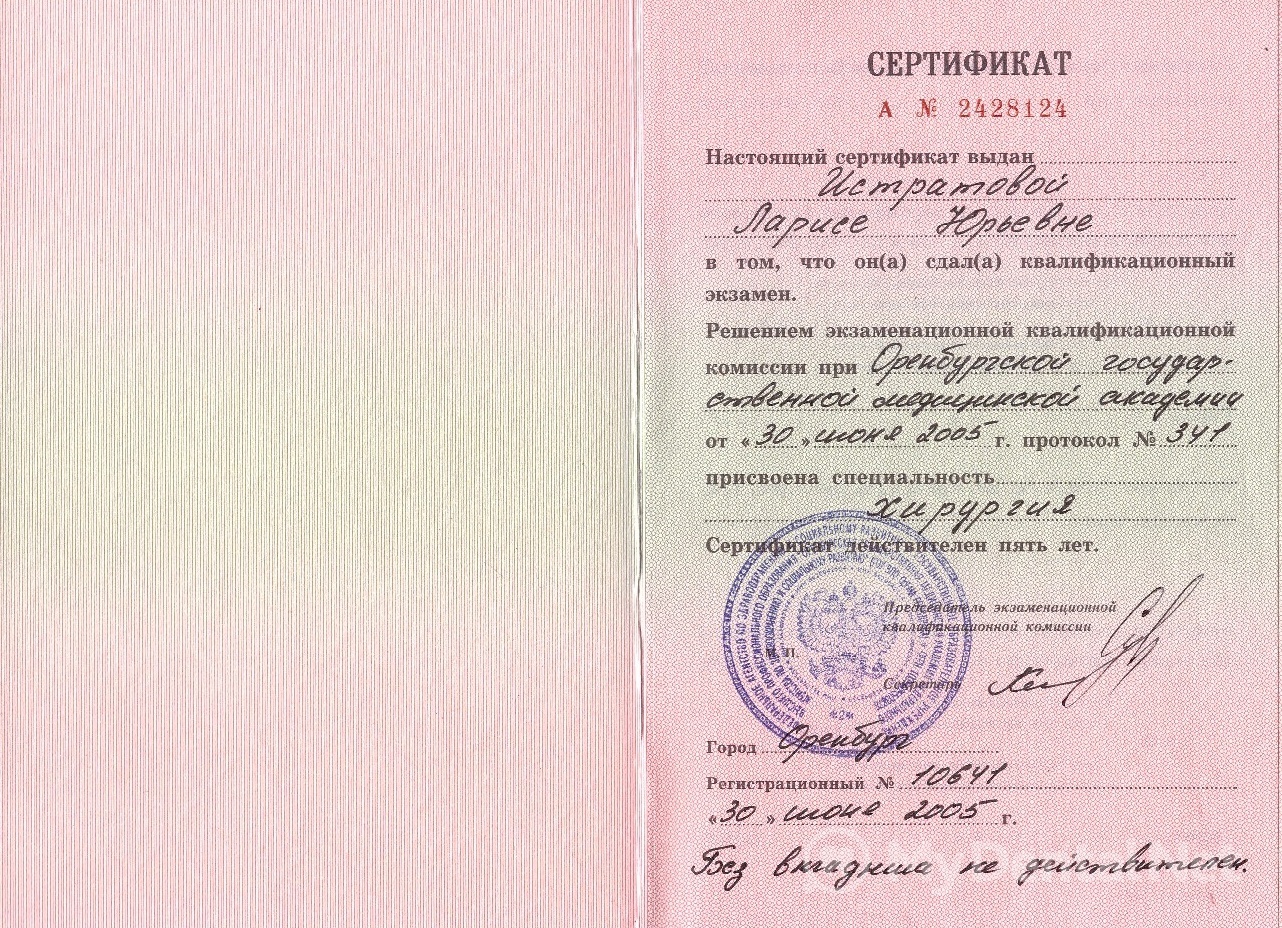 СЕРТИФИКАТ
А № 2428124
Настоящий сертификат выдан
Истратовой
Ларисе Юрьевне
в том, что он(а) сдал(а) квалификационный
экзамен.
Решением экзаменационной квалификационной
комиссии при Оренбургской государ-
ственной медицинской академии
от «30» июня 2005 г. протокол № 341
присвоена специальность
хирургия
Сертификат действителен пять лет.
Председатель экзаменационной
квалификационной комиссии
М. П.
Секретарь
Город Оренбург
Регистрационный № 10641
«30» июня 2005 г.
Без вкладыша не действителен.